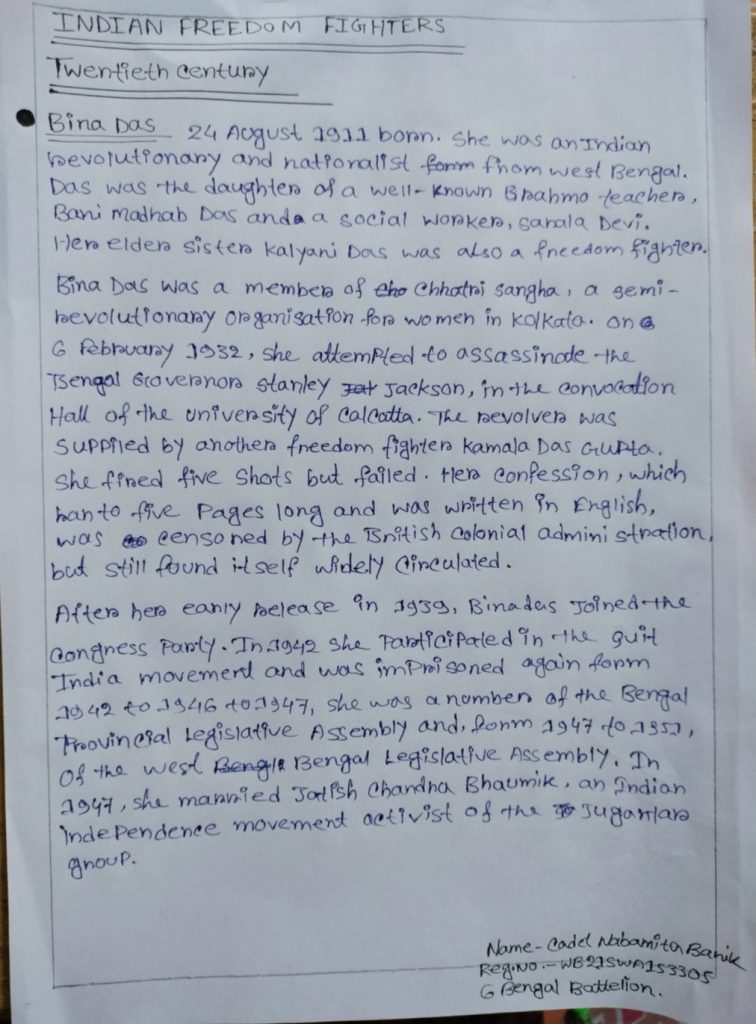 INDIAN FREEDOM FIGHTERS
Twentieth century
Bina Das 24 August 1911 born. She was an Indian
revolutionary and nationalist from West Bengal.
Das was the daughter of a well-known Brahmo teacher,
Bani madhab Das and a social worker, sarala Devi.
Her elder sister Kalyani Das was also a freedom fighter.
Bina Das was a member of Chhatri sangha, a semi-
revolutionary organisation for women in Kolkata. on
6 February 1932, she attempted to assassinate the
Bengal Governor Stanley Jackson, in the convocation
Hall of the university of Calcatta. The revolver was
supplied by another freedom fighter Kamala Das Gupta.
She fired five shots but failed. Her confession, which
ran to five Pages long and was written in English,
was censored by the British Colonial administration,
but still found itself widely circulated.
After her early release in 1939, Binadas Joined the
Congress Party. In 1942 she Participated in the quit
India movement and was imprisoned again form
1942 to 1946 to 1947, she was a nomber of the Bengal
Provincial Legislative Assembly and, form 1947 to 1951,
Of the west Bengal Legislative Assembly. In
1947, she married Jatish Chandra Bhaumik, an Indian
independence movement activist of the Jugantar
group.
Name - Cadet Nabamita Banik
Reg.No :- WB21SWA153305
6 Bengal Battelion.